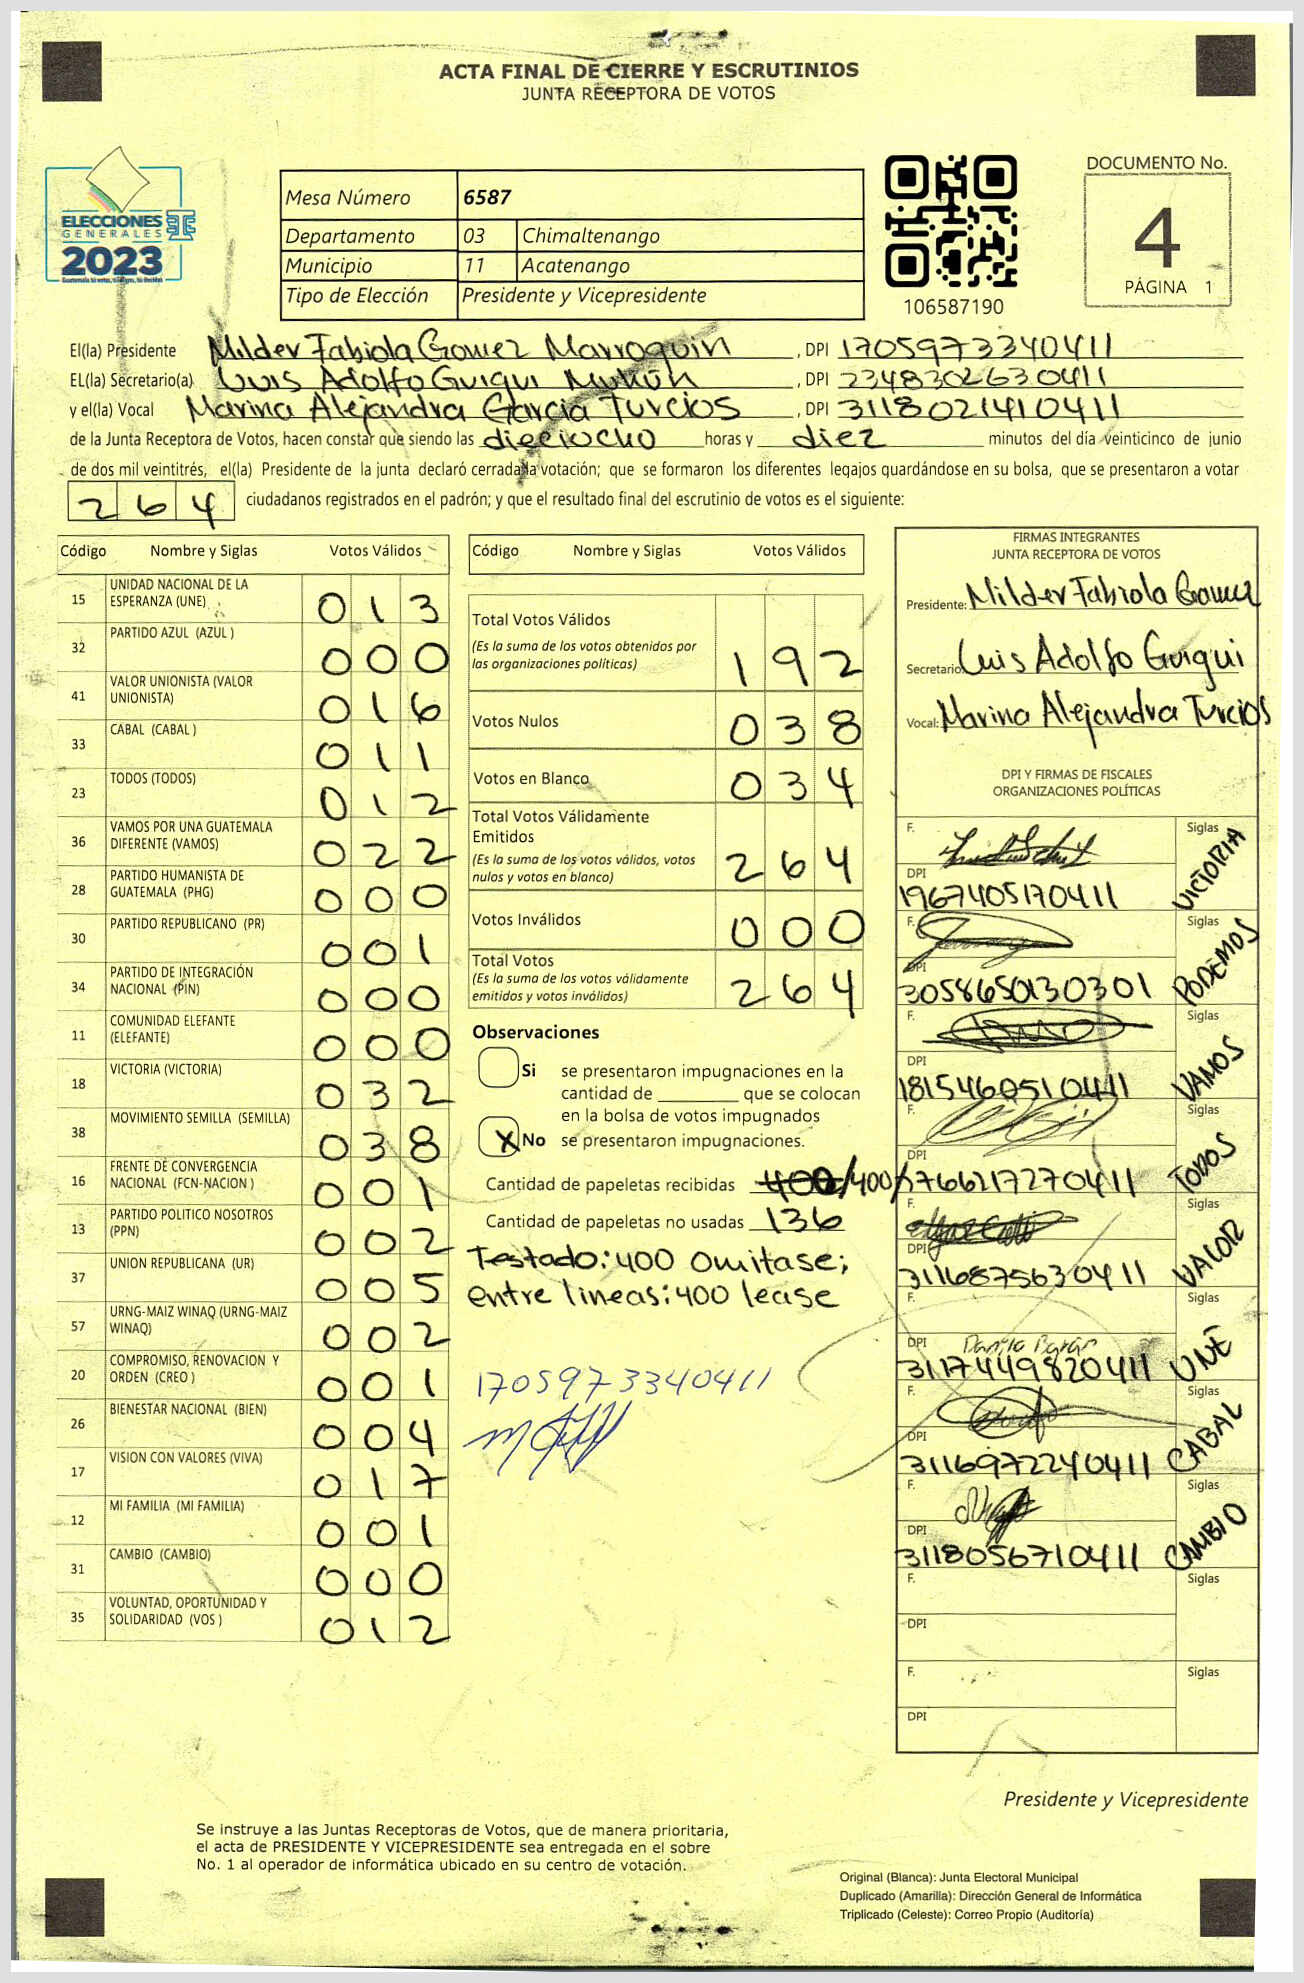 ACTA FINAL DE CIERRE Y ESCRUTINIOS
JUNTA RECEPTORA DE VOTOS
ELECCIONES
GENERALES
2023
Mesa Número 6587
Departamento 03 Chimaltenango
Municipio 11 Acatenango
Tipo de Elección Presidente y Vicepresidente
106587190
DOCUMENTO No.
4
PÁGINA 1
El(la) Presidente Milder Fabiola Gomez Marroquin , DPI 1705973340411
EL(la) Secretario(a) Luis Adolfo Guiqui Mukún , DPI 2348302630411
y el(la) Vocal Marina Alejandra Garcia Turcios , DPI 3118021410411
de la Junta Receptora de Votos, hacen constar que siendo las dieciocho horas y diez minutos del día veinticinco de junio
de dos mil veintitrés, el(la) Presidente de la junta declaró cerrada la votación; que se formaron los diferentes legajos guardándose en su bolsa, que se presentaron a votar
264 ciudadanos registrados en el padrón; y que el resultado final del escrutinio de votos es el siguiente:
Código Nombre y Siglas Votos Válidos
15 UNIDAD NACIONAL DE LA ESPERANZA (UNE) 013
32 PARTIDO AZUL (AZUL ) 000
41 VALOR UNIONISTA (VALOR UNIONISTA) 016
33 CABAL (CABAL ) 011
23 TODOS (TODOS) 012
36 VAMOS POR UNA GUATEMALA DIFERENTE (VAMOS) 022
28 PARTIDO HUMANISTA DE GUATEMALA (PHG) 000
30 PARTIDO REPUBLICANO (PR) 001
34 PARTIDO DE INTEGRACIÓN NACIONAL (PIN) 000
11 COMUNIDAD ELEFANTE (ELEFANTE) 000
18 VICTORIA (VICTORIA) 032
38 MOVIMIENTO SEMILLA (SEMILLA) 038
16 FRENTE DE CONVERGENCIA NACIONAL (FCN-NACION ) 001
13 PARTIDO POLITICO NOSOTROS (PPN) 002
37 UNION REPUBLICANA (UR) 005
57 URNG-MAIZ WINAQ (URNG-MAIZ WINAQ) 002
20 COMPROMISO, RENOVACION Y ORDEN (CREO ) 001
26 BIENESTAR NACIONAL (BIEN) 004
17 VISION CON VALORES (VIVA) 017
12 MI FAMILIA (MI FAMILIA) 001
31 CAMBIO (CAMBIO) 000
35 VOLUNTAD, OPORTUNIDAD Y SOLIDARIDAD (VOS ) 012
Código Nombre y Siglas Votos Válidos
Total Votos Válidos 192
(Es la suma de los votos obtenidos por
las organizaciones políticas)
Votos Nulos 038
Votos en Blanco 034
Total Votos Válidamente
Emitidos
(Es la suma de los votos válidos, votos
nulos y votos en blanco) 264
Votos Inválidos 000
Total Votos
(Es la suma de los votos válidamente
emitidos y votos inválidos) 264
Observaciones
Si se presentaron impugnaciones en la
cantidad de ________ que se colocan
en la bolsa de votos impugnados
X No se presentaron impugnaciones.
Cantidad de papeletas recibidas 400/400/
Cantidad de papeletas no usadas 136
Testado: 400 omitase;
entre lineas: 400 lease
1705973340411
FIRMAS INTEGRANTES
JUNTA RECEPTORA DE VOTOS
Presidente: Milder Fabiola Gomez
Secretario: Luis Adolfo Guiqui
Vocal: Marina Alejandra Turcios
DPI Y FIRMAS DE FISCALES
ORGANIZACIONES POLÍTICAS
F. Siglas VICTORIA
DPI 1967405170411
F. Siglas PODEMOS
DPI 3058650130301
F. Siglas VAMOS
DPI 1815460510411
F. Siglas TODOS
DPI 1766217270411
F. Siglas VALOR
DPI 3116875630411
F. Siglas UNE
DPI 3117449820411
F. Siglas CABAL
DPI 3116972240411
F. Siglas CAMBIO
DPI 3118056710411
F. Siglas
DPI
F. Siglas
DPI
Presidente y Vicepresidente
Se instruye a las Juntas Receptoras de Votos, que de manera prioritaria,
el acta de PRESIDENTE Y VICEPRESIDENTE sea entregada en el sobre
No. 1 al operador de informática ubicado en su centro de votación.
Original (Blanca): Junta Electoral Municipal
Duplicado (Amarilla): Dirección General de Informática
Triplicado (Celeste): Correo Propio (Auditoría)